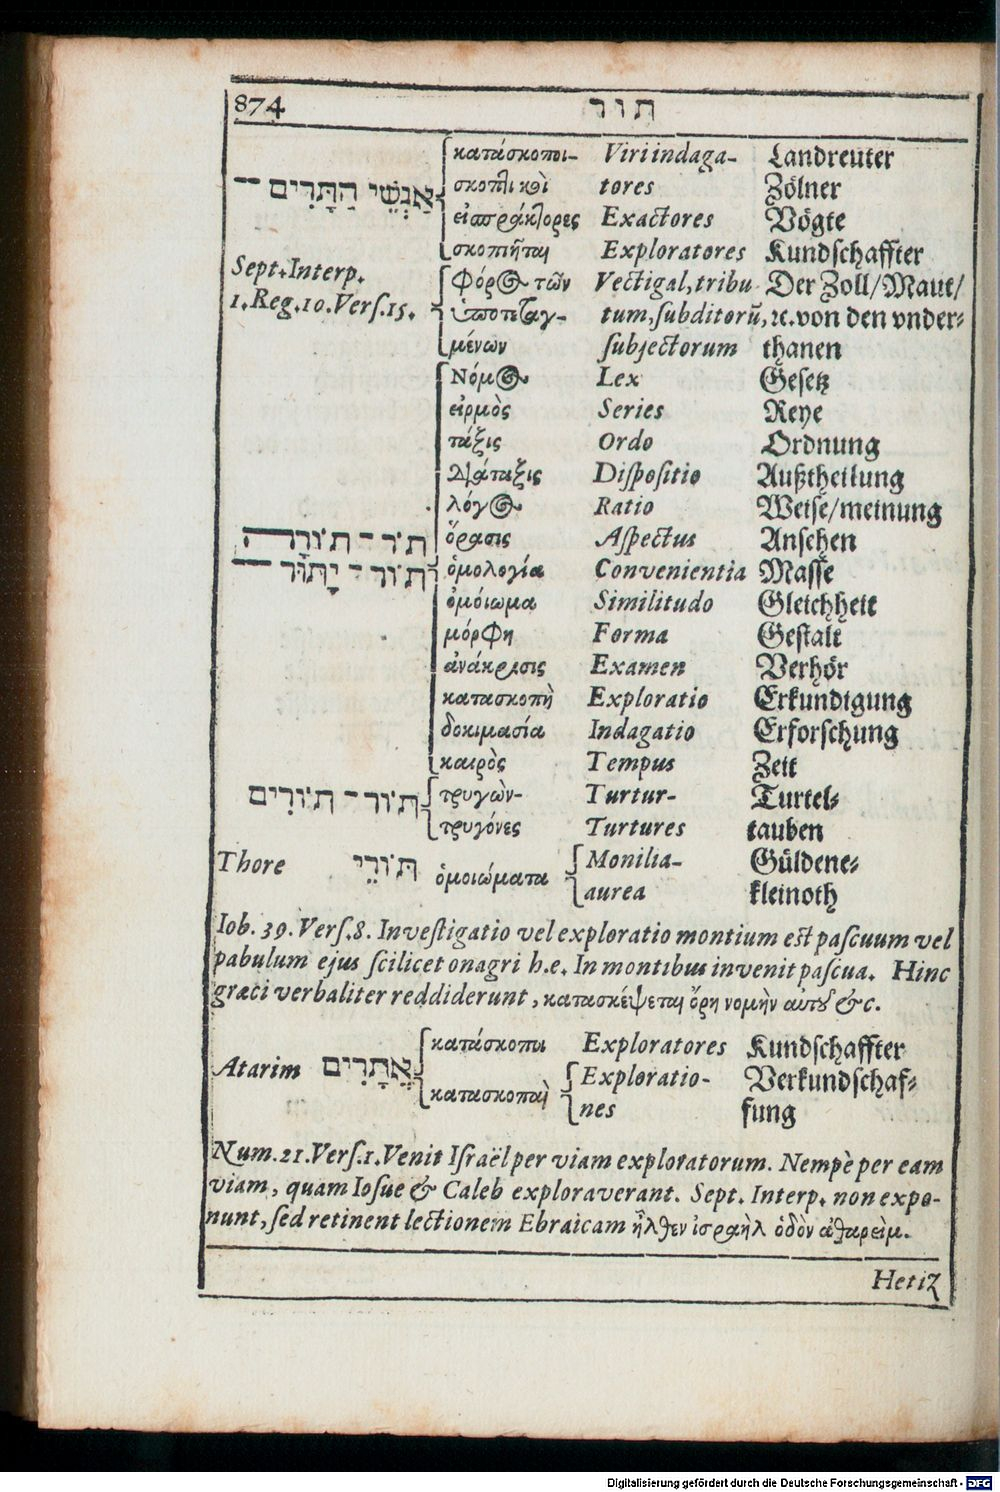 874 תור
κατάσκοποι- Viri indaga- Landreuter
אַנְשֵׁי הַתָּרִים — σκοπλικοὶ tores Zölner
εἰσπράκτορες Exactores Vögte
σκοπῆται Exploratores Kundschaffter
Sept. Interp. φόρος τῶν Vectigal, tribu Der Zoll/Maut/
1. Reg. 10. Vers. 15. ὑποτεταγ- tum, subditorū, ꝛc. von den vnder-
μένων subjectorum thanen
Νόμος Lex Gesetz
εἱρμὸς Series Reye
τάξις Ordo Ordnung
διάταξις Dispositio Außtheilung
λόγος Ratio Weise/meinung
תּוֹר – תּוֹרָה ὅρασις Aspectus Ansehen
תּוֹר – יָתוּר — ὁμολογία Convenientia Masse
ὁμοίωμα Similitudo Gleichheit
μόρφη Forma Gestalt
ἀνάκρισις Examen Verhör
κατασκοπὴ Exploratio Erkundigung
δοκιμασία Indagatio Erforschung
καιρὸς Tempus Zeit
תּוֹר – תּוֹרִים τρυγὼν- Turtur- Turtel-
τρυγόνες Turtures tauben
Thore תּוֹרֵי ὁμοιώματα Monilia- Güldene-
aurea kleinoth
Iob. 39. Vers. 8. Investigatio vel exploratio montium est pascuum vel
pabulum ejus scilicet onagri h.e. In montibus invenit pascua. Hinc
græci verbaliter reddiderunt, κατασκέψεται ὄρη νομὴν αὐτοῦ &c.
κατάσκοποι Exploratores Kundschaffter
Atarim אֲתָרִים Exploratio- Verkundschaf-
κατασκοπαὶ nes fung
Num. 21. Vers. 1. Venit Israël per viam exploratorum. Nempè per eam
viam, quam Iosue & Caleb exploraverant. Sept. Interp. non expo-
nunt, sed retinent lectionem Ebraicam ἦλθεν ἰσραὴλ ὁδὸν ἀθαρεὶμ.
Hetiz
Digitalisierung gefördert durch die Deutsche Forschungsgemeinschaft - DFG